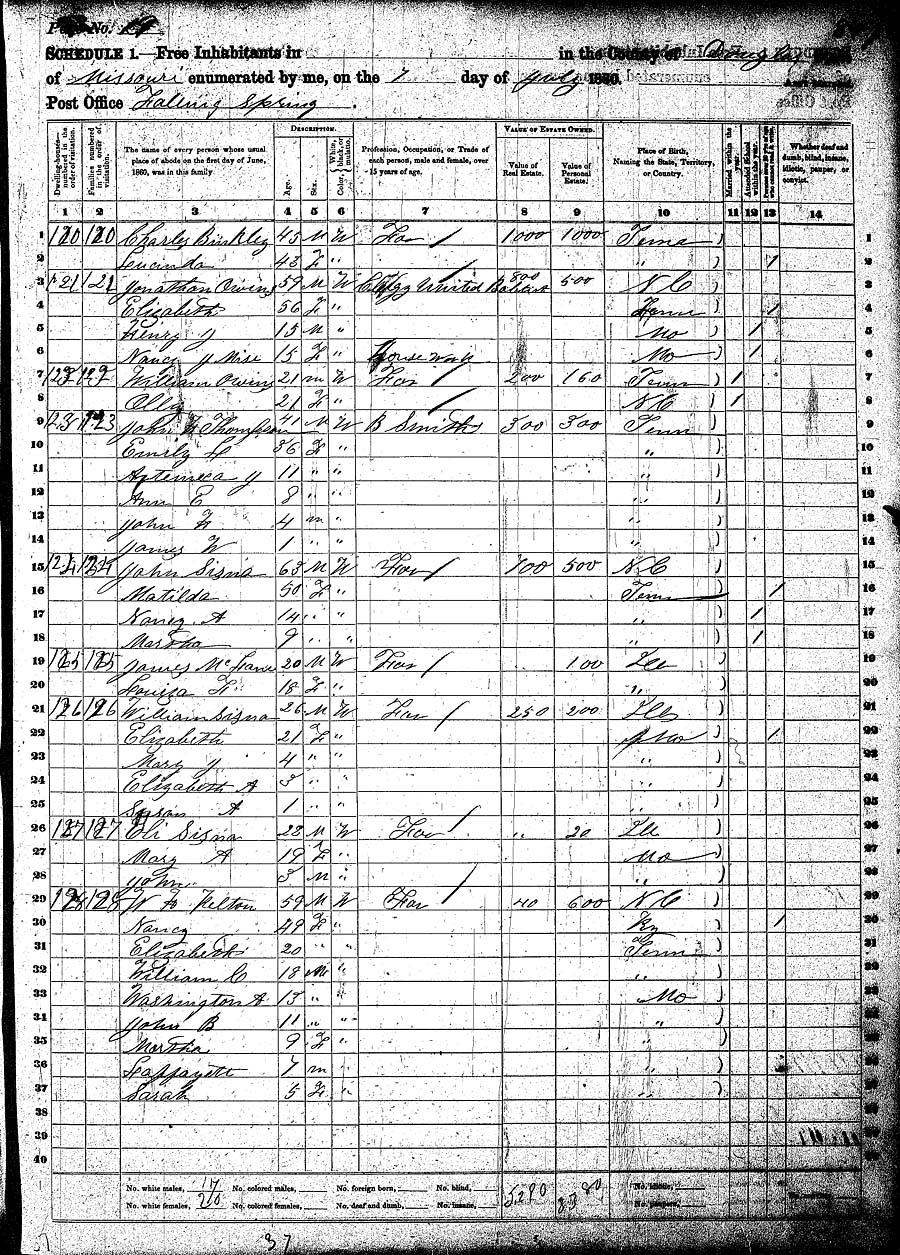 Page No.
SCHEDULE 1.—Free Inhabitants in in the County of Douglas
of Missouri enumerated by me, on the 7 day of July 1860.
Post Office Falling Spring.
Dwelling-houses—numbered in the order of visitation. Families numbered in the order of visitation. The name of every person whose usual place of abode on the first day of June, 1860, was in this family. DESCRIPTION. Age. Sex. Color, White, black, or mulatto. Profession, Occupation, or Trade of each person, male and female, over 15 years of age. VALUE OF ESTATE OWNED. Value of Real Estate. Value of Personal Estate. Place of Birth, Naming the State, Territory, or Country. Married within the year. Attended School within the year. Whether deaf and dumb, blind, insane, idiotic, pauper, or convict.
1 2 3 4 5 6 7 8 9 10 11 12 13 14
1 120 120 Charles Binkley 45 M W Far / 1000 1000 Tenn 1
2 Lucinda 43 F " / " / 2
3 121 121 Jonathan Owens 59 M W Clergy United Baptist 800 500 N C 3
4 Elizabeth 56 F " Tenn / 4
5 Henry J 15 M " Mo / 5
6 Nancy J Wise 15 F " House work Mo / 6
7 122 122 William Owens 21 m W Far / 200 160 Tenn / 7
8 Olly 21 F " / N C / 8
9 123 123 John F Thompson 41 M W B Smith 300 300 Tenn 9
10 Emily L 36 F " " 10
11 Artemeca J 11 " " " 11
12 Ann E 8 " " " 12
13 John F 4 m " " 13
14 James W 1 " " " 14
15 124 124 John Signa 63 M W Far / 700 500 N C 15
16 Matilda 50 F " Tenn / 16
17 Nancy A 14 " " " / 17
18 Martha 9 " " " / 18
19 125 125 James McLane 20 M W Far / 100 Ill 19
20 Louisa F 18 F " " 20
21 126 126 William Signa 26 M W Far / 250 200 Ills 21
22 Elizabeth 21 F " Mo / 22
23 Mary J 4 " " " 23
24 Elizabeth A 3 " " " 24
25 Susan A 1 " " " 25
26 127 127 Eli Signa 23 M W Far / " 20 Ill 26
27 Mary A 19 F " Mo 27
28 John 3 M " / " 28
29 128 128 W F Felton 59 M W Far 40 600 N C 29
30 Nancy 49 F " Ky / 30
31 Elizabeth 20 " " Tenn 31
32 William C 18 M " " 32
33 Washington A 13 " " Mo 33
34 John B 11 " " " 34
35 Martha 9 F " " 35
36 Laffayett 7 m " " 36
37 Sarah 5 F " " 37
38
39
40
No. white males, 17 No. colored males, No. foreign born, No. blind, 5280 No. idiotic,
No. white females, 20 No. colored females, No. deaf and dumb, No. insane, No. paupers,
37